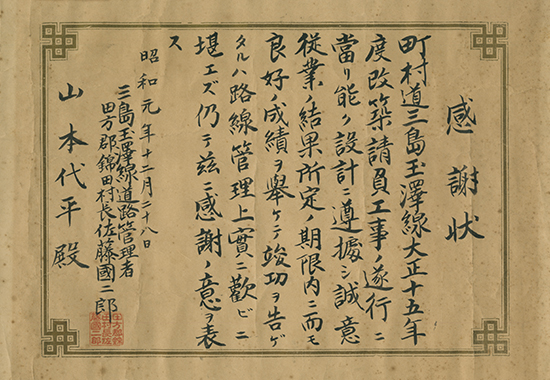 感謝状
町村道三島玉澤線大正十五年
度改築請負工事ノ遂行ニ
當リ能ク設計ニ遵據シ誠意
従業ノ結果所定ノ期限内ニ而モ
良好ノ成績ヲ舉ケテ竣功ヲ告ゲ
タルハ路線管理上實ニ歡ビニ
堪エズ仍テ茲ニ感謝ノ意ヲ表
ス
昭和元年十二月二十八日
三島玉澤線道路管理者
田方郡錦田村長佐藤國二郎
山本代平殿